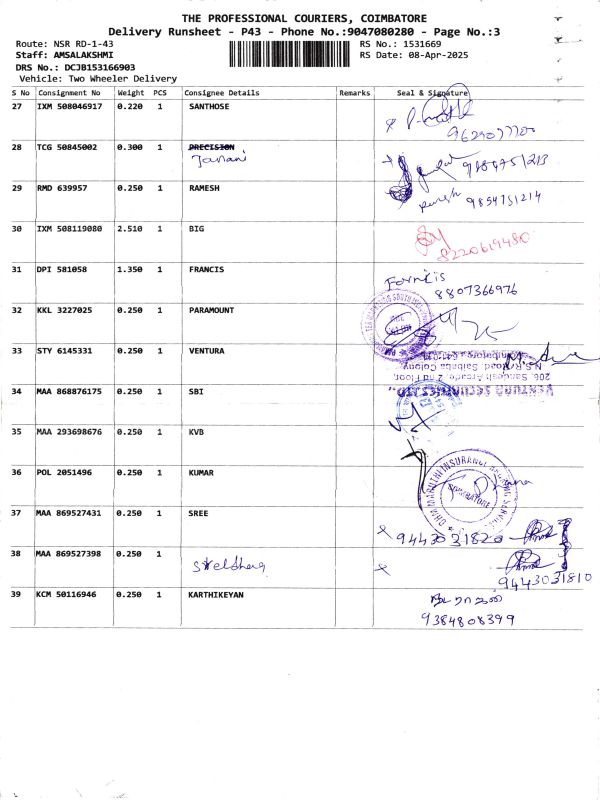 THE PROFESSIONAL COURIERS, COIMBATORE
Delivery Runsheet - P43 - Phone No.:9047080280 - Page No.:3
Route: NSR RD-1-43 RS No.: 1531669
Staff: AMSALAKSHMI RS Date: 08-Apr-2025
DRS No.: DCJB153166903
Vehicle: Two Wheeler Delivery
S No Consignment No Weight PCS Consignee Details Remarks Seal & Signature
27 IXM 508046917 0.220 1 SANTHOSE
28 TCG 50845002 0.300 1 PRECISION
Janani
29 RMD 639957 0.250 1 RAMESH
9854751214
30 IXM 508119080 2.510 1 BIG
8220619480
31 DPI 581058 1.350 1 FRANCIS
8807366976
32 KKL 3227025 0.250 1 PARAMOUNT
33 STY 6145331 0.250 1 VENTURA
N.S.R. Road, Saibaba Colony,
206, Sangeeth Arcade, 2nd Floor,
VENTURA SECURITIES LTD.,
34 MAA 868876175 0.250 1 SBI
35 MAA 293698676 0.250 1 KVB
36 POL 2051496 0.250 1 KUMAR
37 MAA 869527431 0.250 1 SREE
9443031820
38 MAA 869527398 0.250 1
9443031810
39 KCM 50116946 0.250 1 KARTHIKEYAN
9384808399